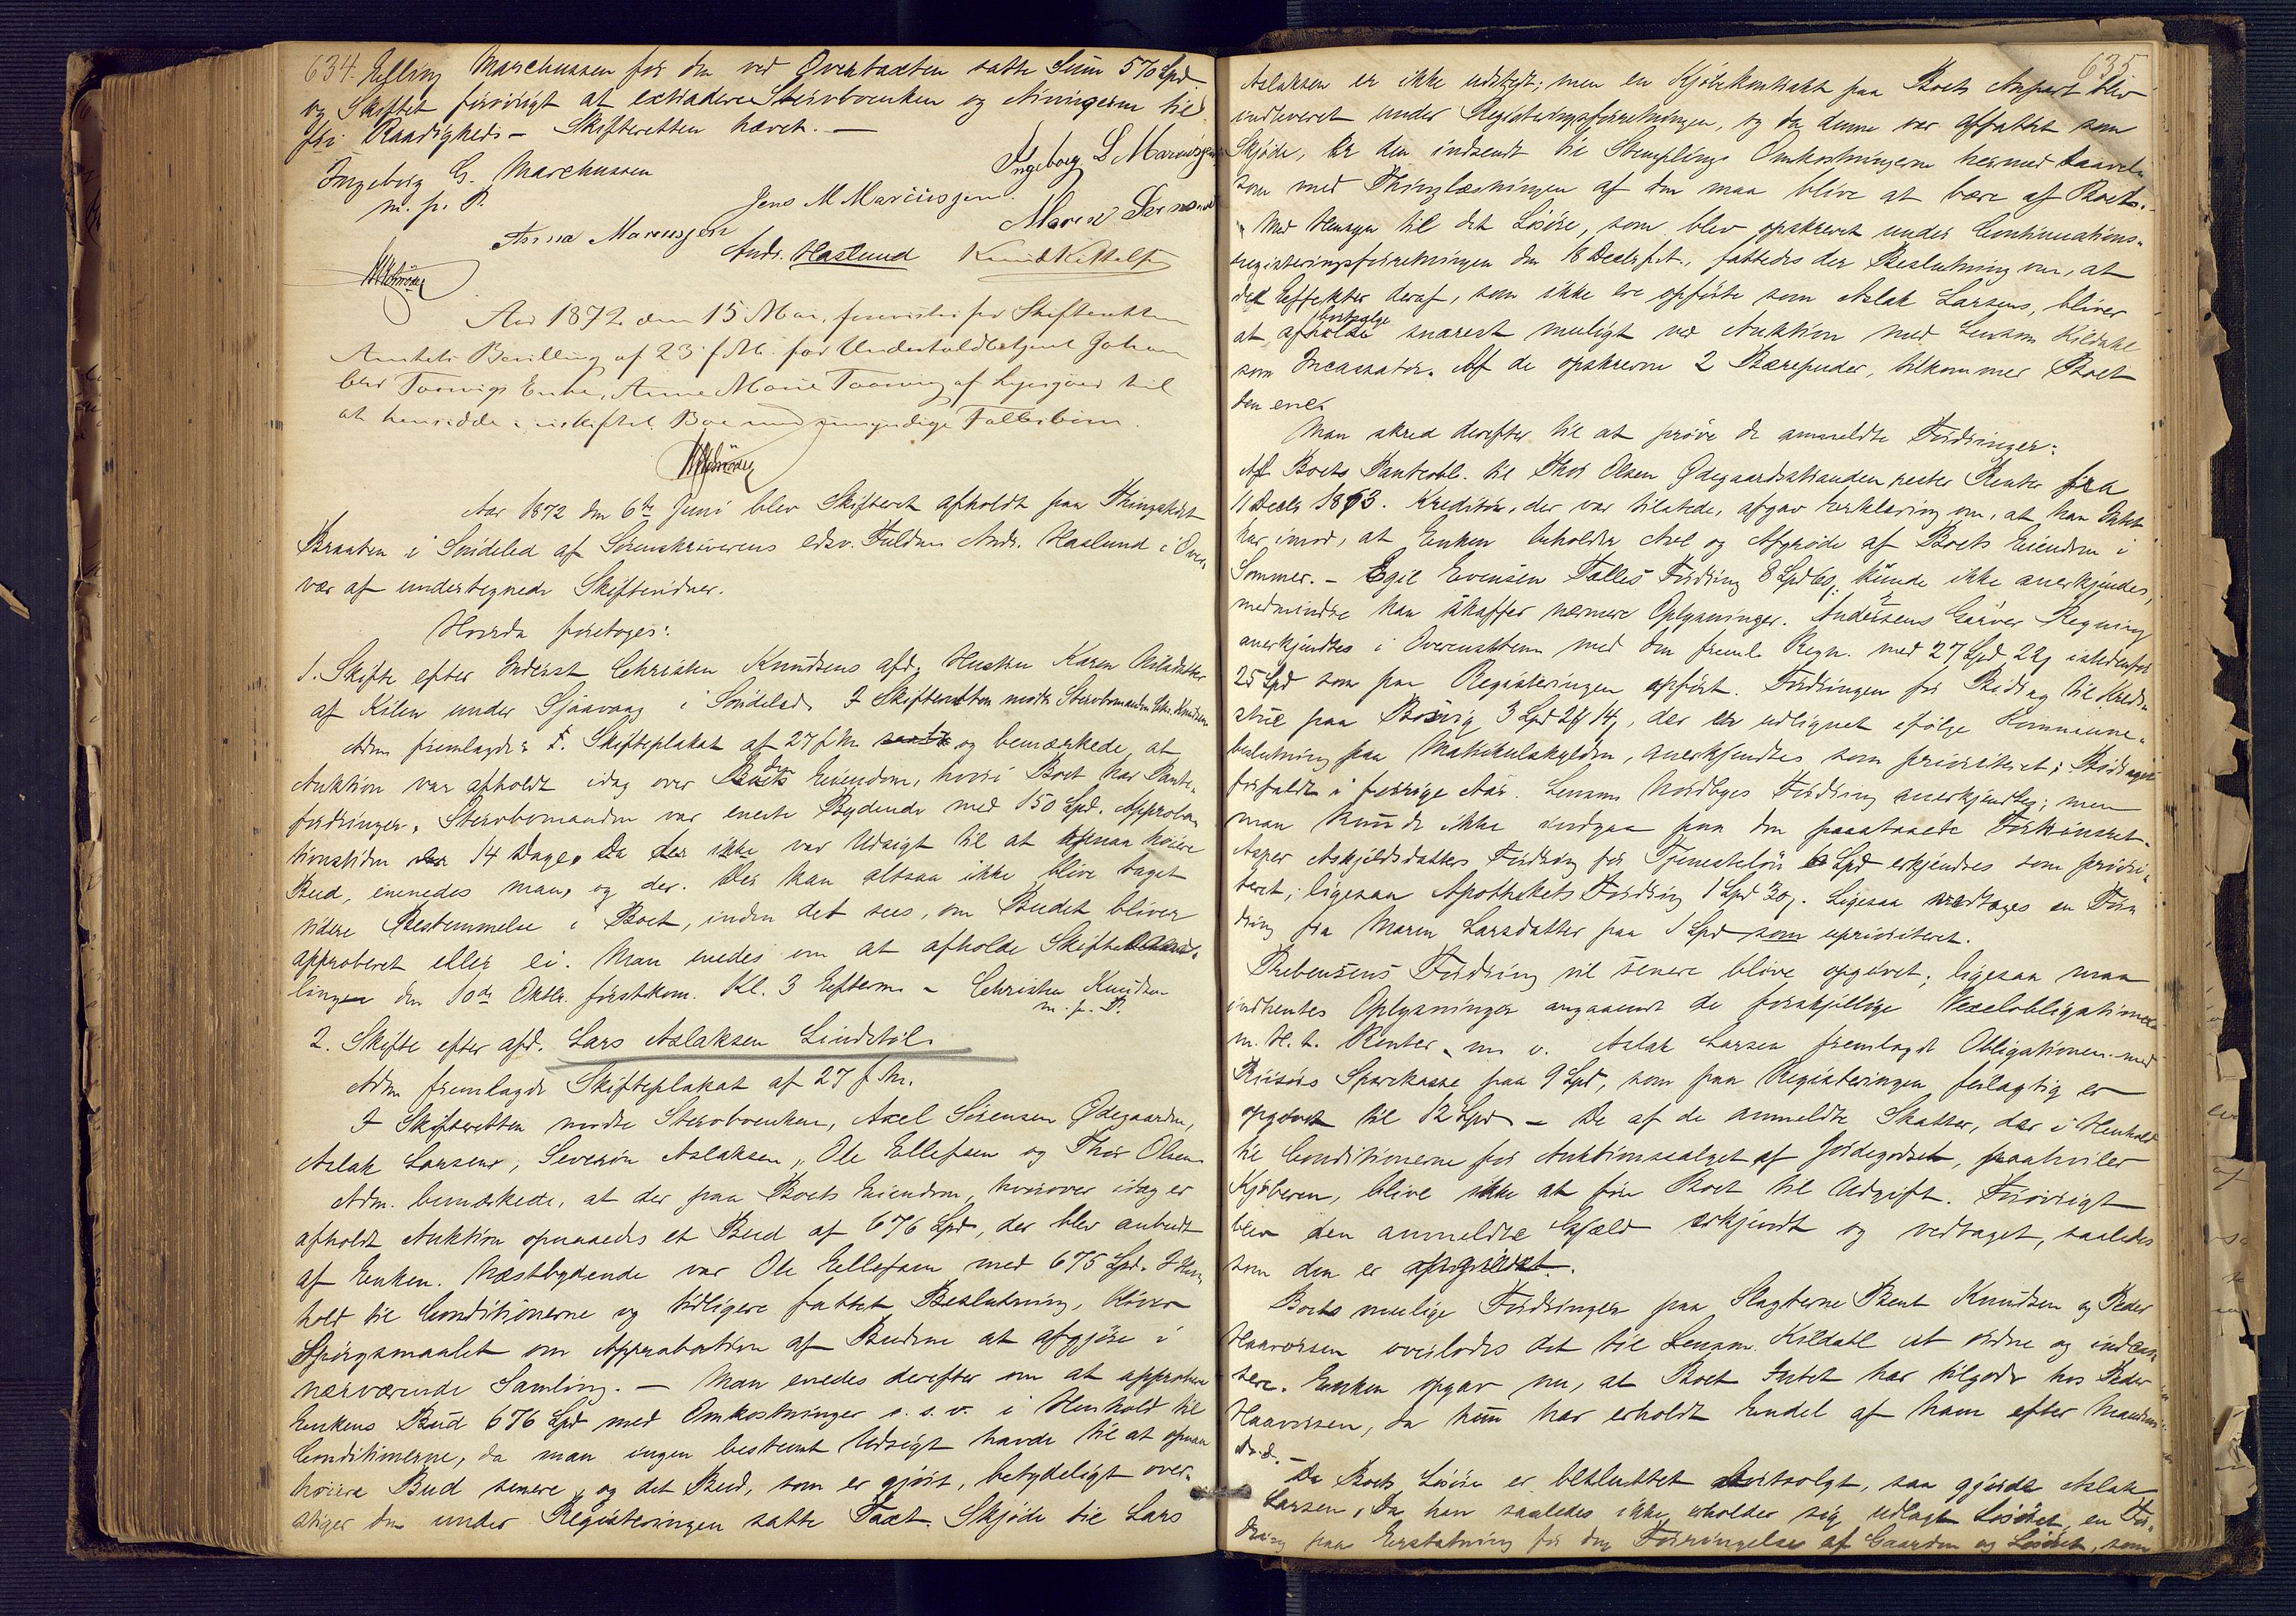 634.
Efling Marchussen for den ved Overtaxten satte Sum 570 Spd.
og Skiftet forøvrigt at extradere Stervboenken og Arvingerne til
fri Raadigheds – Skifteretten hævet. –
Ingeborg G. Marchussen
m. p. P.
Ingeborg L Marcusjen
Jens M Marcusjen.
Anna Marcusjen
Andr. Haslund
Aar 1872 den 15 Mai, forevistes for Skifteretten
Amtets Bevilling af 23 f. M. for Underfoldbetjent Johan
Enke, Anne Marie af Lyngør til
at hensidde i uskiftet Boe med umyndige Fællesbørn.
Aar 1872 den 6te Juni blev Skifteret afholdt paa Thingstedet
Braaten i Søndeled af Sorenskriverens edsv. Fuldm. Andr. Haslund i Over
vær af undertegnede Skiftevidner.
Hvorda foretoges:
1. Skifte efter Inderst Christen Knudsens afd. Hustru Karen
af Kilen under Sjaavaag i Søndeled. I Skifteretten mødte Stervbomanden Chr. Knudsen
Adm. fremlagde: 1. Skifteplakat af 27 f. M. og bemærkede, at
Auktion var afholdt idag over Eiendom, hvori Boet har Pante-
fordringer. Stervbomanden var eneste Bydende med 150 Spd. Approba-
tionstiden 14 Dage. Da der ikke var Udsigt til at opnaa høiere
Bud, enenedes man, og der. Der kan altsaa ikke blive taget
videre Bestemmelse i Boet, inden det sees, om Budet bliver
approberet eller ei. Man enedes om at afholde Skiftebehand-
lingen den 10de Oktbr. førstkom. Kl. 3 Efterm. – Christen Knudsen
m. p. P.
2. Skifte efter afd. Lars Aslaksen Lindstøl.
Adm. fremlagde Skifteplakat af 27 f. M.
I Skifteretten mødte Stervboenken, Axel Sørensen Ødegaarden,
Aslak Larsens, Severin Aslaksen, Ole Ellefsen og Thor Olsen.
Adm. bemærkede, at der paa Boets Eiendom, hvorover idag er
afholdt Auktion opnaaedes et Bud af 676 Spd, der blev anbudt
af Enken. Næstbydende var Ole Ellefsen med 675 Spd. I Hen-
hold til Conditionerne og tidligere fattet Beslutning, bliver
Spørgsmaalet om Approbation af Budene at afgjøre i
nærværende Samling. – Man enedes derefter om at approbere
Enkens Bud 676 Spd med Omkostninger o. s. v. i Henhold til
Conditionerne, da man ingen bestemt Udsigt havde til at opnaa
høiere Bud senere, og det Bud, som er gjort, betydeligt over-
stiger den under Registeringen satte Taxt. Skjøde til Lars
635
Aslaksen er ikke udstedt; men en Kjøbekontrakt paa Boets Anpart blev
indleveret under Registeringsforretningen, og da denne var affattet som
Skjøde, er den indsendt til Stempling. Omkostningerne hermed saavel
som med Thinglæsningen af den maa blive at bære af Boet. –
Med Hensyn til det Løsøre, som blev opskrevet under Continuations-
registeringsforretningen den 18 Decbr f. A., fattedes der Beslutning om, at
de Effekter deraf, som ikke ere opførte som Aslak Larsens, bliver
at bortsælge snarest muligt ved Auktion med Lensm. Kildahl
som Incassator. Af de opskrevne 2 Bærepuder, tilkommer Boet
den ene.
Man skred derefter til at prøve de anmeldte Fordringer:
Af Boets Panteobl. til Thor Olsen Ødegaardsstranden rester Renter fra
11 Decbr 1863. Kreditor, der var tilstede, afgav Erklæring om, at han Intet
har imod, at Enken beholder Avl og Afgrøde af Boets Eiendom i
Sommer. – Egil Evensen Talles Fordring 8 Spd 60 kunde ikke anerkjendes,
medmindre han skaffer nærmere Oplysninger. Andersens Garver Regning
anerkjendtes i Overensstem. med den freml. Regn. med 27 Spd 22 istedenfor
25 Spd som paa Registeringen opført. Fordringen for Bidrag til Kreds-
stue paa Bosvig 3 Spd 2 14, der er udlignet ifølge Kommune-
beslutning paa Matrikulskylden, anerkjendtes som prioriteret; Bidraget
forfaldt i forrige Aar. Lensm. Nordbyes Fordring anerkjendtes; men
man kunde ikke indgaa paa den paastaaede Forkrinsret.
Asper Askjeldsdatters Fordring for Tjenesteløn 6 Spd erkjendtes som priori-
teret; ligesaa Apothekets Fordring 1 Spd 30. Ligesaa vedtoges en For-
dring fra Maren Larsdatter paa 1 Spd som uprioriteret.
Prebensens Fordring vil senere blive opgivet; ligesaa maa
indhentes Oplysninger angaaende de forskjellige Vexelobligationer
m. H. t. Renter m. v. Aslak Larsen fremlagde Obligationen med
Risørs Sparekasse paa 9 Spd, som paa Registeringen feilagtig er
opgivet til 12 Spd – De af de anmeldte Skatter, der i Henhold
til Conditionerne for Auktionssalget af Jordegodset, paahviler
Kjøberen, blive ikke at føre Boet til Udgift. Forøvrigt
blev den anmeldte Gjæld erkjendt og vedtaget, saaledes
som den er opgivet.
Boets mulige Fordringer paa Slagterne Bent Knudsen og Peder
Haavorsen overlodes det til Lensm. Kildahl at ordne og indcas-
sere. Enken opgav nu, at Boet Intet har tilgode hos Peder
Haavorsen, da hun har erholdt Endel af ham efter Mandens
Død. –
Da Boets Løsøre er besluttet bortsolgt, saa gjorde Aslak
Larsen, da han saaledes ikke erholder sig udlagt Løsøret, en For-
dring paa Erstatning for den Forringelse af Gaarden og Løsøret, som